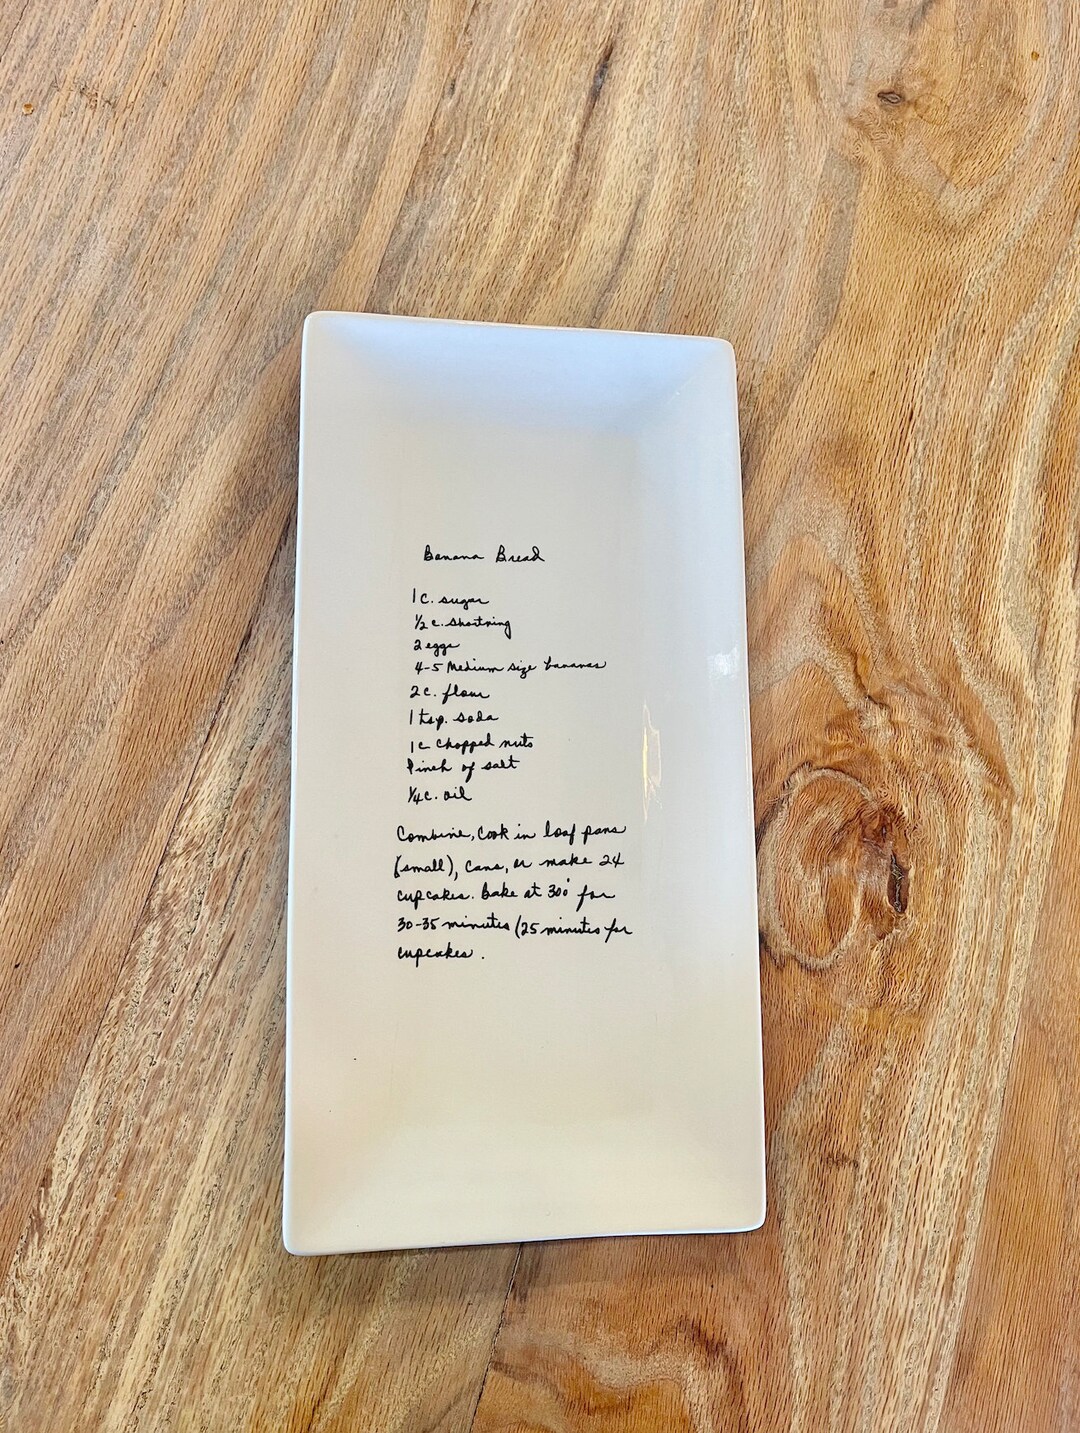 Banana Bread
1 c. sugar
1/2 c. shortning
2 eggs
4-5 Medium size bananas
2 c. flour
1 tsp. soda
1 c chopped nuts
Pinch of salt
1/4 c. oil
Combine, cook in loaf pans
(small), cans, or make 24
cupcakes. Bake at 300° for
30-35 minutes (25 minutes for
cupcakes.